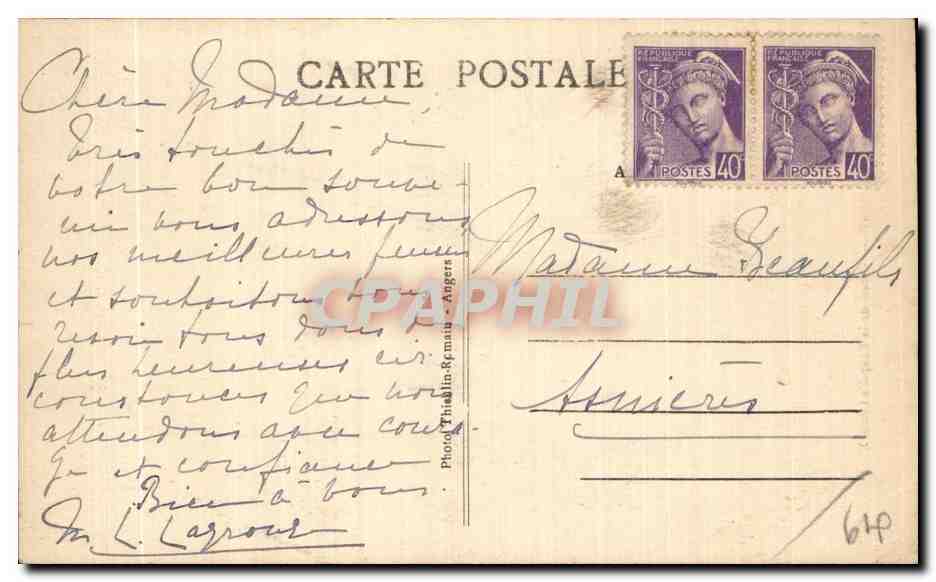 CARTE POSTALE
RÉPUBLIQUE FRANÇAISE
POSTES 40c
RÉPUBLIQUE FRANÇAISE
POSTES 40c
A
Chère Madame,
Très touchés de
votre bon souve-
nir vous adressons
nos meilleures pensées
et souhaitons vous
revoir tous dans de
plus heureuses cir
constances que nous
attendons avec coura-
ge et confiance
Bien à vous.
M. L.
Madame Beaufils
Asnières
Photo Thieulin-Romain - Angers
CPAPHIL